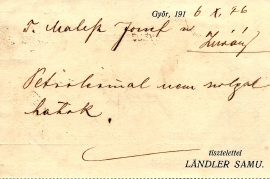 Győr, 1916 X. 26
T. Malek József u
Zurány
Petróleummal nem szolgál
hatok.
tisztelettel
LÄNDLER SAMU.